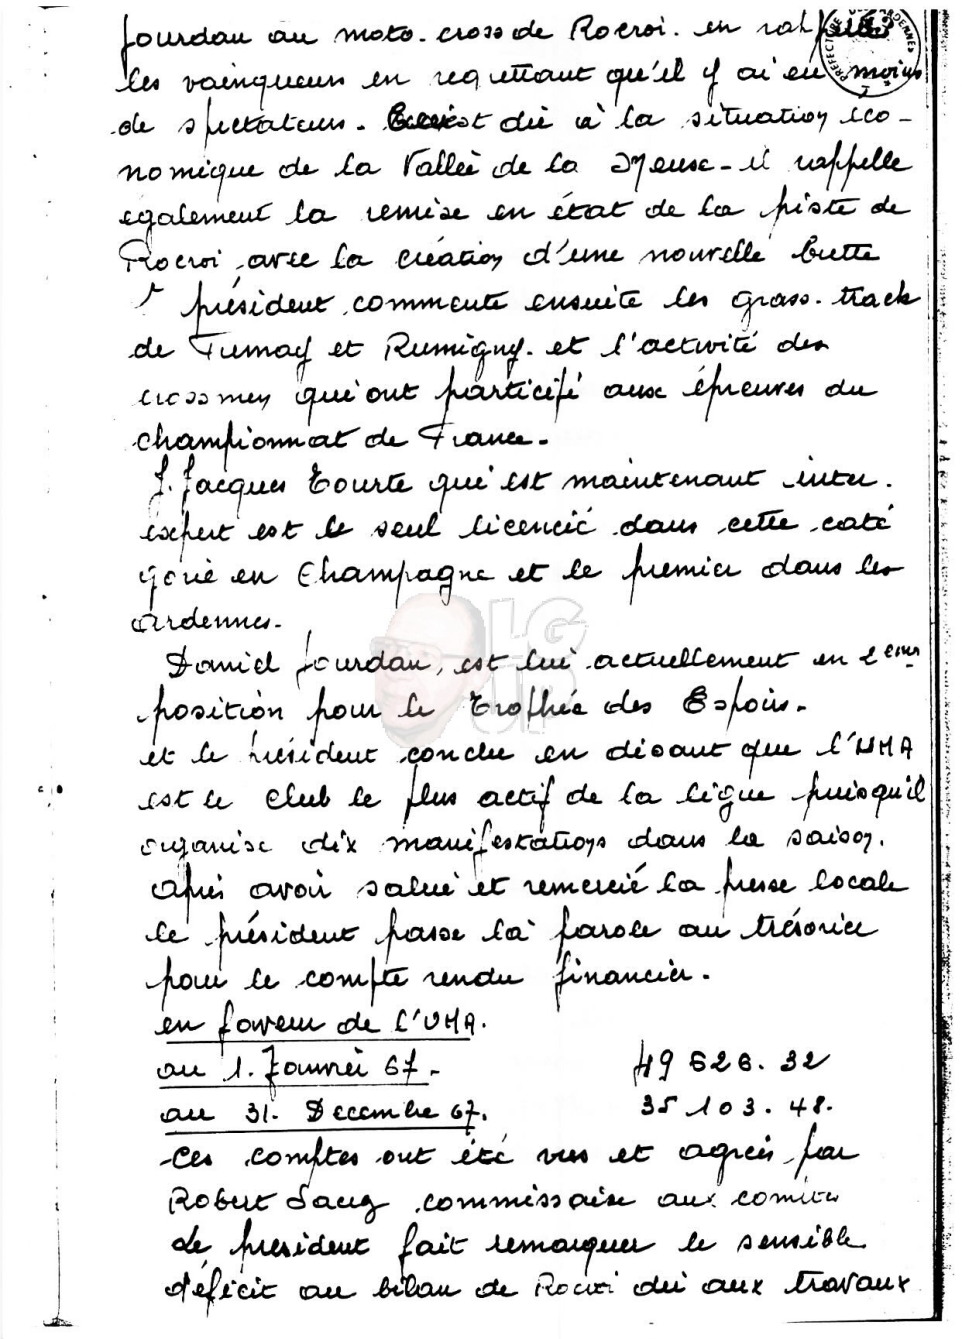 Jourdan au moto-cross de Rocroi. en
les vainqueurs en regrettant qu'il y ai eu moins
de spectateurs. est dû à la situation éco-
nomique de la Vallée de la Meuse - il rappelle
également la remise en état de la piste de
Rocroi, avec la création d'une nouvelle butte
président commente ensuite les grass-track
de Fumay et Rumigny. et l'activité des
crossmen qui ont participé aux épreuves du
championnat de France.
J. Jacques Tourte qui est maintenant inter.
expert est le seul licencié dans cette caté
gorie en Champagne et le premier dans les
ardennes.
Daniel Jourdan, est lui actuellement en 2eme
position pour le Trophée des Espoirs.
et le président conclue en disant que l'UMA
est le club le plus actif de la ligue puisqu'il
organise dix manifestations dans la saison.
après avoir salué et remercié la presse locale
le président passe la parole au trésorier
pour le compte rendu financier.
en faveur de l'UMA.
au 1. Janvier 67. 49 626. 32
au 31. Decembre 67. 35 103. 48.
Ces comptes ont été vus et agréés par
Robert commissaire aux comites
Le président fait remarquer le sensible
déficit au bilan de Rocroi dû aux travaux
PREFECTURE ARDENNES
LG
UP